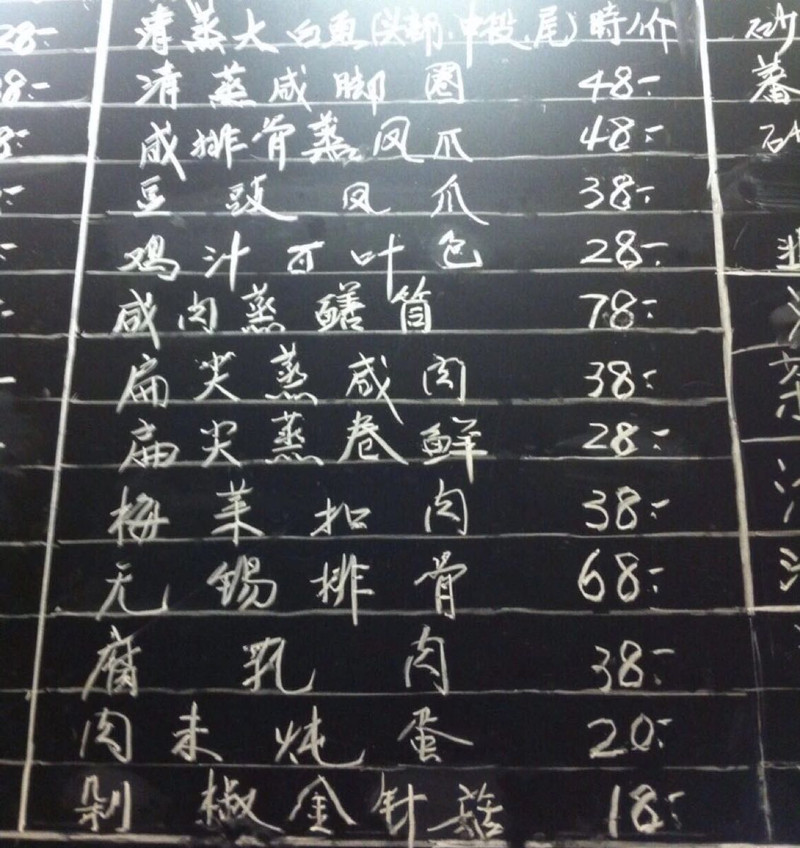 清蒸大白鱼(头部.中段.尾) 時价
清蒸咸脚圈 48:-
咸排骨蒸凤爪 48:-
豆豉凤爪 38:-
鸡汁百叶包 28:-
咸肉蒸鳝筒 78:-
扁尖蒸咸肉 38:-
扁尖蒸卷鲜 28:-
梅菜扣肉 38:-
无锡排骨 68:-
腐乳肉 38:-
肉未炖蛋 20:-
剁椒金针菇 18:-